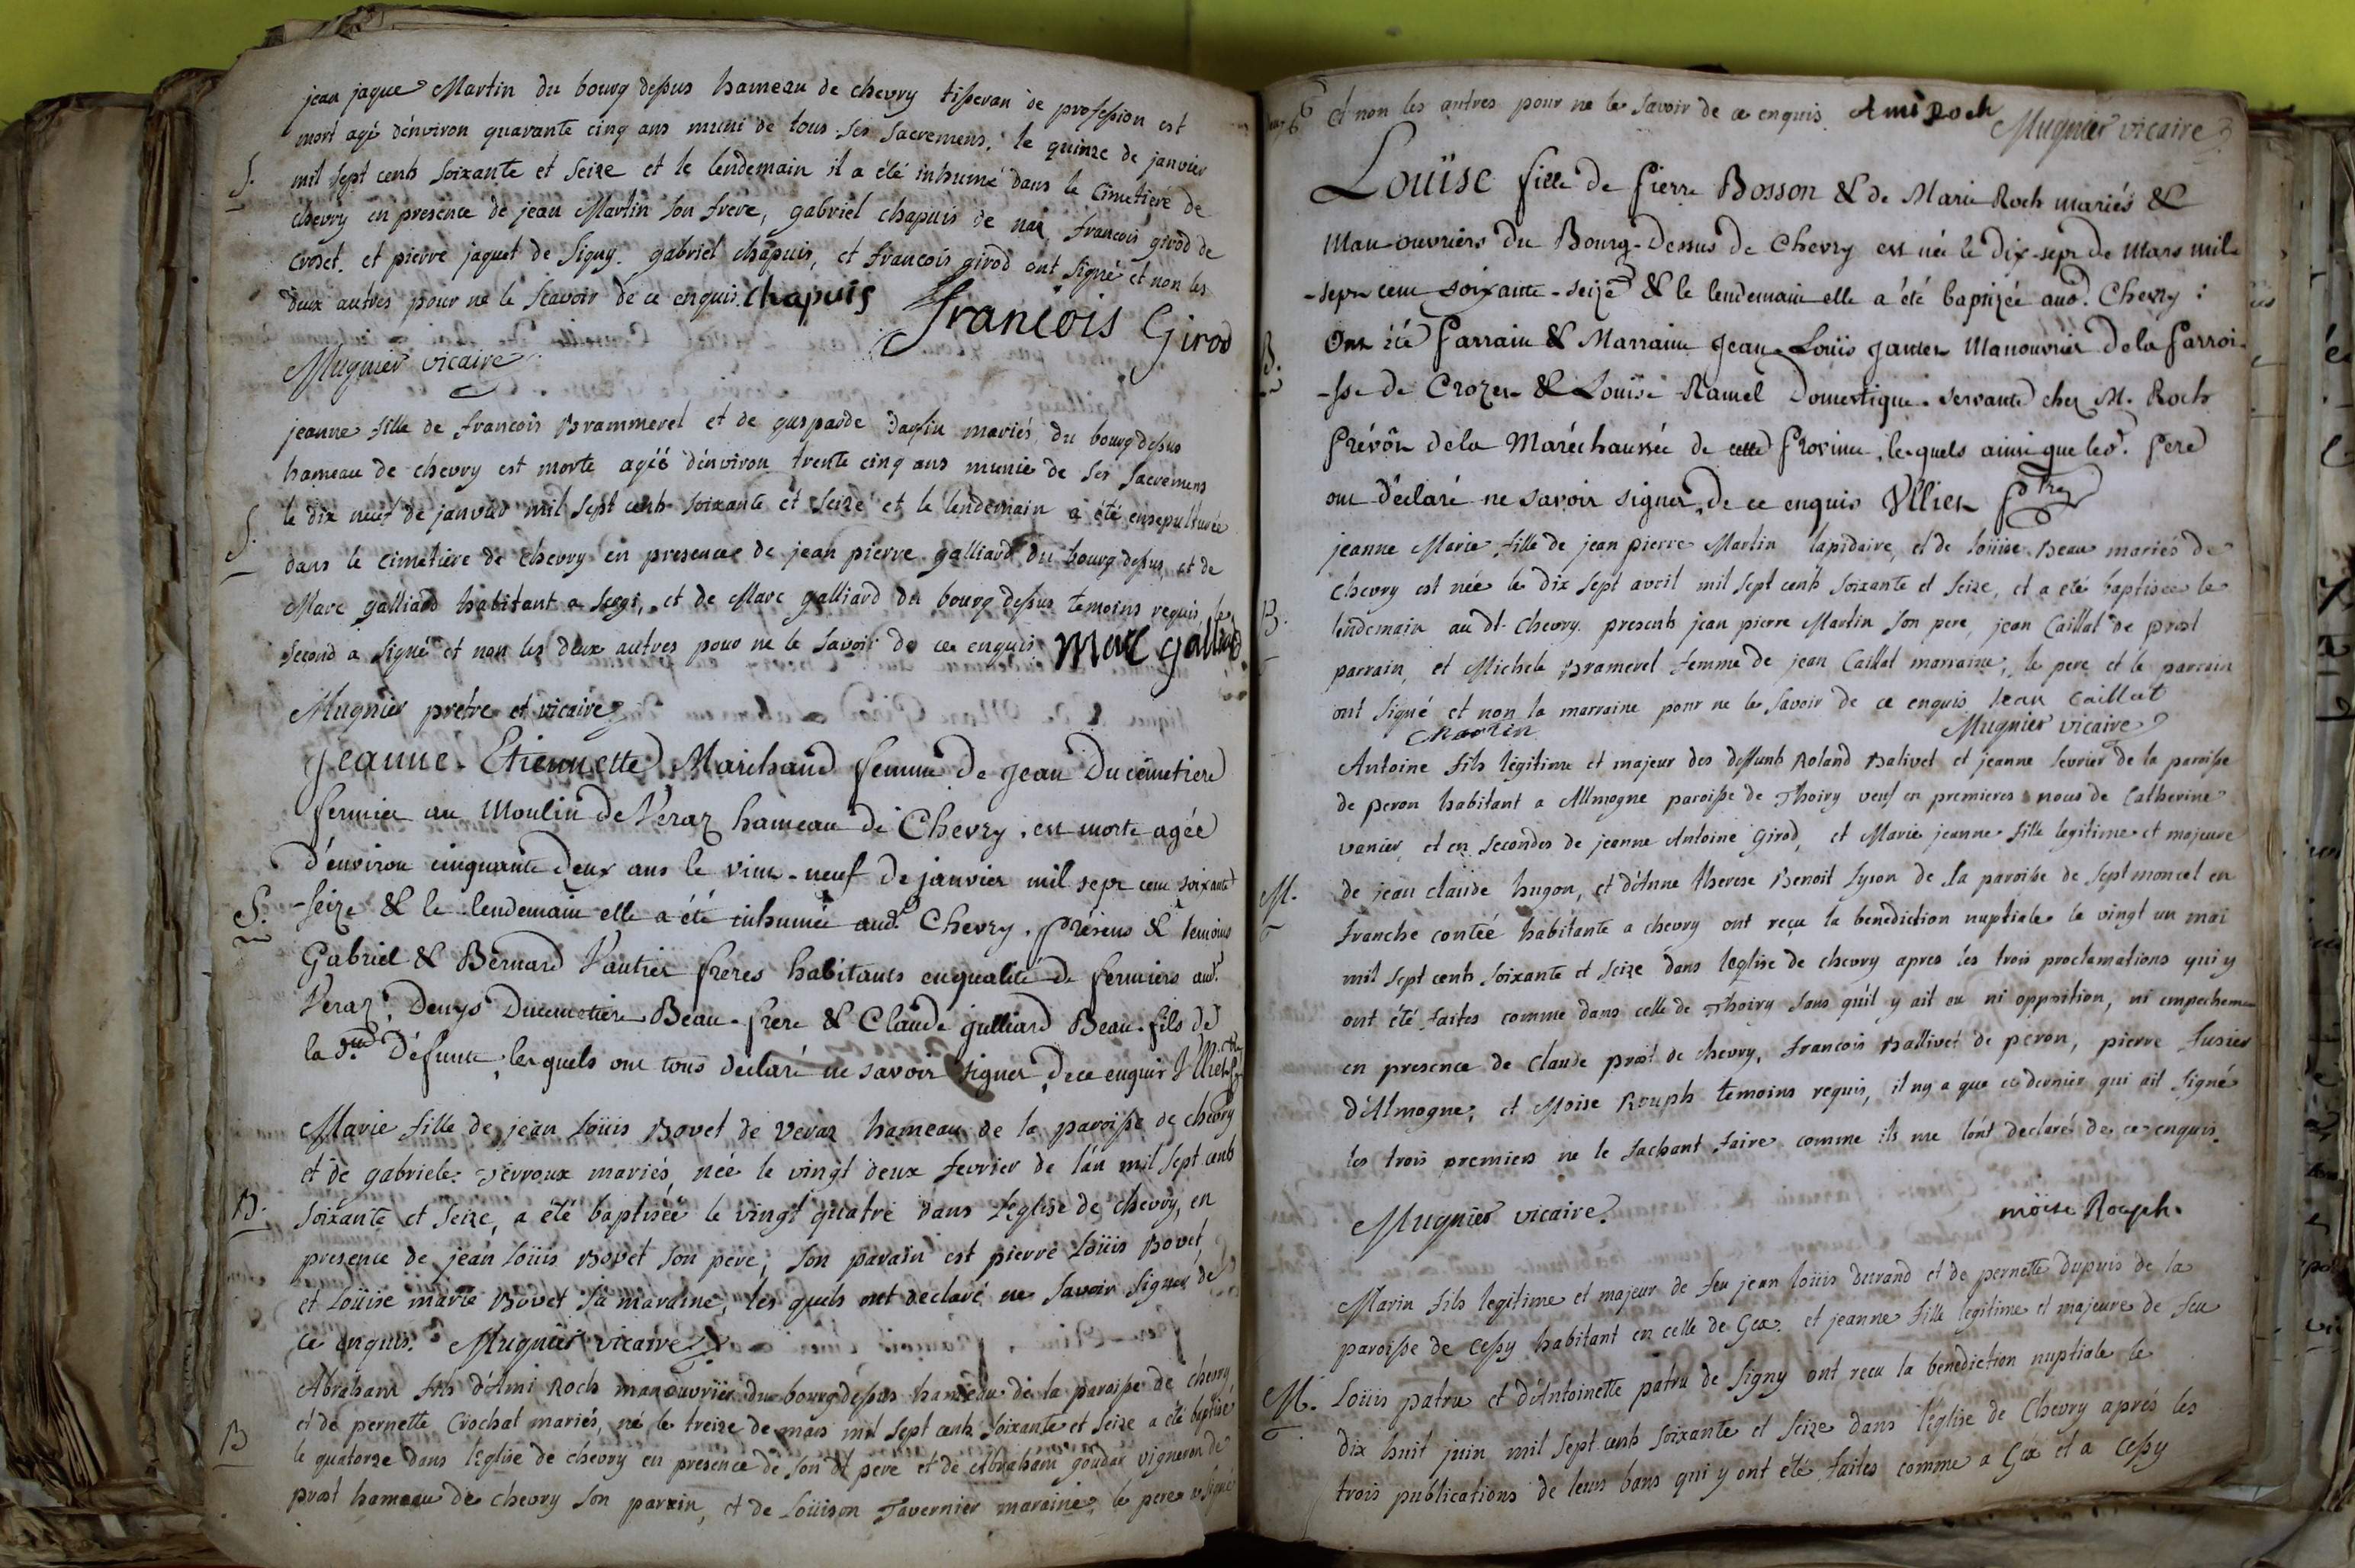 jean jaque Martin du bourg dessus hameau de chevry tisseran de profession est
mort agé d'énviron quarante cinq ans muni de tous ses sacremens, le quinze de janvier
S. mil sept cents soixante et seize et le lendemain il a été inhumé dans le cimetiére de
chevry en presence de jean Martin son frere, gabriel chapuis de naz, francois girod de
crozet. et pierre jaquet de signy. gabriel chapuis, et francois girod ont signé et non les
deux autres pour ne le scavoir de ce enquis. Chapuis
Francois Girod
Mugnier vicaire
jeanne fille de francois Brammerel et de gasparde mariés du bourg dessus
hameau de chevry est morte agéé d'énviron trente cinq ans munie de ses sacremens
S. le dix neuf de janvier mil sept cents soixante et seize et le lendemain a été ensepulturée
dans le cimetiére de chevry en presence de jean pierre galliard du bourg dessus, et de
Marc galliard habitant a segi, et de Marc galliard du bourg dessus temoins requis, le
second a signé et non les deux autres pour ne le savoir de ce enquis Marc galliard
Mugnier pretre et vicaire
Jeanne-Etiennette Marchand femme de Jean Ducimetiere
fermier au Moulin de Veraz hameau de Chevry, est morte agée
d'environ cinquante deux ans le vint-neuf de janvier mil sept cent soixante
S. -seize & le lendemain elle a été inhumée aud. Chevry. présens & temoins
Gabriel & Bernard Vautier freres habitants en qualité de fermiers aud.
Veraz, Denys Ducimetiere Beau-frere & Claude gulliard Beau-fils de
la dte. défunte, lesquels ont tous declaré ne savoir signer, de ce enquis Ulliet ptre
Marie fille de jean Loüis Bovet de veraz hameau de la paroisse de chevry
et de gabriele verroux mariés, née le vingt deux fevrier de l'an mil sept cents
B. soixante et seize, a été baptisée le vingt quatre dans l'eglise de chevry, en
presence de jean Loüis Bovet son pere, son parain est pierre Loüis Bovet,
et Loüise marie Bovet sa maraine, les quels ont declaré ne savoir signer de
ce enquis. Mugnier vicaire
Abraham fils d'Ami Roch manouvrier du bourg dessus hameau de la paroisse de chevry
et de pernette Crochat mariés, né le treize de mars mil sept cents soixante et seize a été baptisé
B le quatorze dans l'eglise de chevry en presence de son dt pere et de Abraham goudar vigneron de
prost hameau de chevry son parrin, et de Loüison Tavernier maraine, le pere a signé
et non les autres pour ne le savoir de ce enquis Ami Roch
Mugnier vicaire
Louïse fille de Pierre Bosson & de Marie Roch mariés &
Manouvriers du Bourg-Dessus de Chevry est née le dix-sept de Mars mil
-sept cent soixante-seize & le lendemain elle a été baptizée aud. Chevry:
B. Ont été Parrain & Marraine Jean-Louïs Janter Manouvrier de la Parroi-
-sse de Crozet & Louïse Ramel Domestique-servante chez M. Roch
Prévôt de la Maréchaussée de cette Province, lesquels ainsi que led. Pere
ont déclaré ne savoir signer, de ce enquis Ulliet ptre
jeanne Marie fille de jean pierre Martin lapidaire, et de loüise Beau mariés de
chevry est née le dix sept avril mil sept cents soixante et seize, et a eté baptisée le
B. lendemain au dt. chevry. presents jean pierre Martin son pere, jean Caillat de prost
parrain, et Michele Bramerel femme de jean Caillat marraine, le pere et le parrain
ont signé et non la marraine pour ne le savoir de ce enquis Jean Caillat
Martin
Mugnier vicaire
Antoine fils légitime et majeur des deffunts Roland Balivet et jeanne sevrier de la paroisse
de peron habitant a Allmogne paroisse de Thoiry veuf en premieres nous de Catherine
vanier, et en secondes de jeanne Antoine girod, et Marie jeanne fille legitime et majeure
M. de jean claude hugon, et d'Anne therese Benoit Lyson de la paroisse de sept moncel en
franche contéé habitante a chevry ont reçu la benediction nuptiale le vingt un mai
mil sept cents soixante et seize dans l'eglise de chevry apres les trois proclamations qui y
ont été faites comme dans celle de Thoiry sans qu'il y ait eu ni opposition, ni empechement
en presence de Claude prost de chevry, francois Ballivet de peron, pierre fusier
d'Almogne, et Moise Rouph temoins requis, il ny a que ce dernier qui ait signé
les trois premiers ne le sachant faire comme ils me l'ont declaré de ce enquis.
Mugnier vicaire.
moïse Rouph.
Marin fils legitime et majeur de feu jean loüis durand et de pernette dupuis de la
paroisse de cessy habitant en celle de Gex. et jeanne fille legitime et majeure de feu
M. Loüis patru et d'Antoinette patru de signy ont recu la benediction nuptiale le
dix huit juin mil sept cents soixante et seize dans l'église de Chevry aprés les
trois publications de leurs bans qui y ont été faites comme a Gex et a cessy